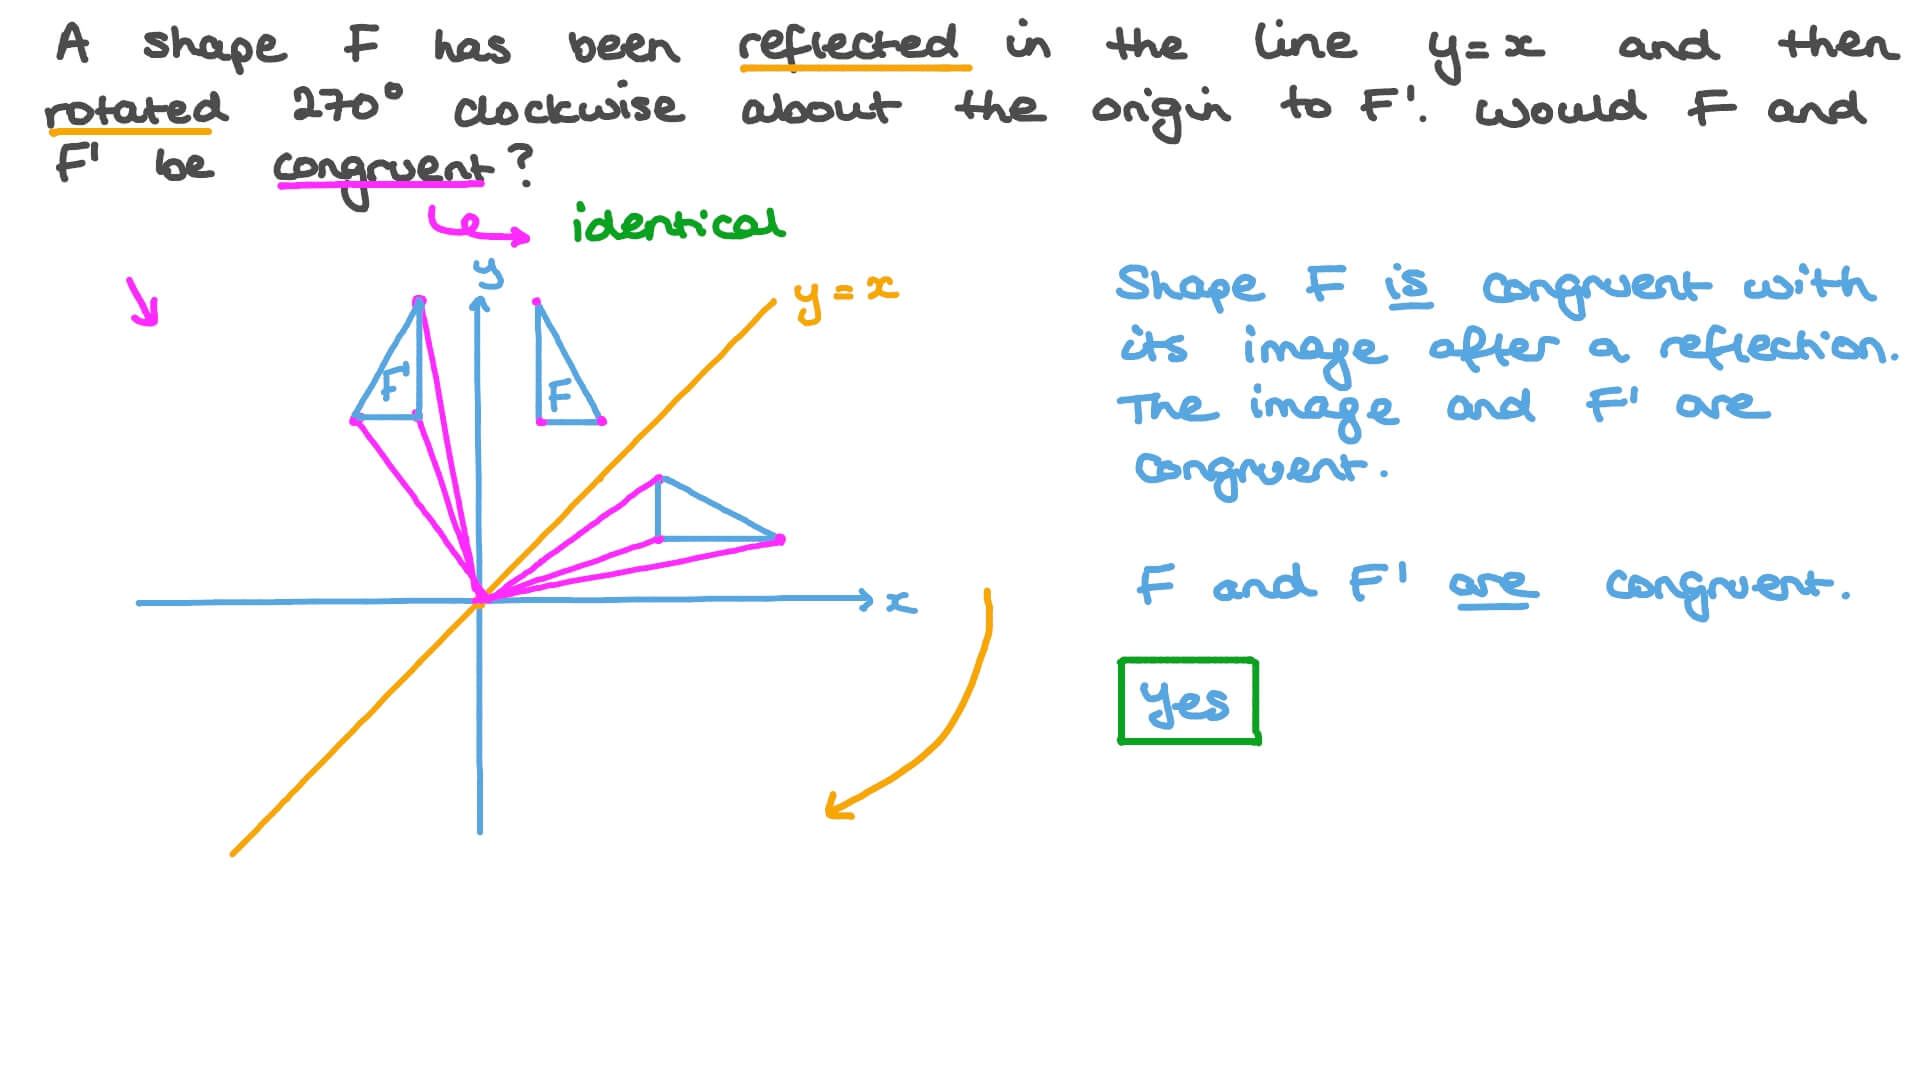 A shape F has been reflected in the line y=x and then
rotated 270° clockwise about the origin to F'. Would F and
F' be congruent?
identical
y
y=x
F'
F
x
Shape F is congruent with
its image after a reflection.
The image and F' are
congruent.
F and F' are congruent.
Yes